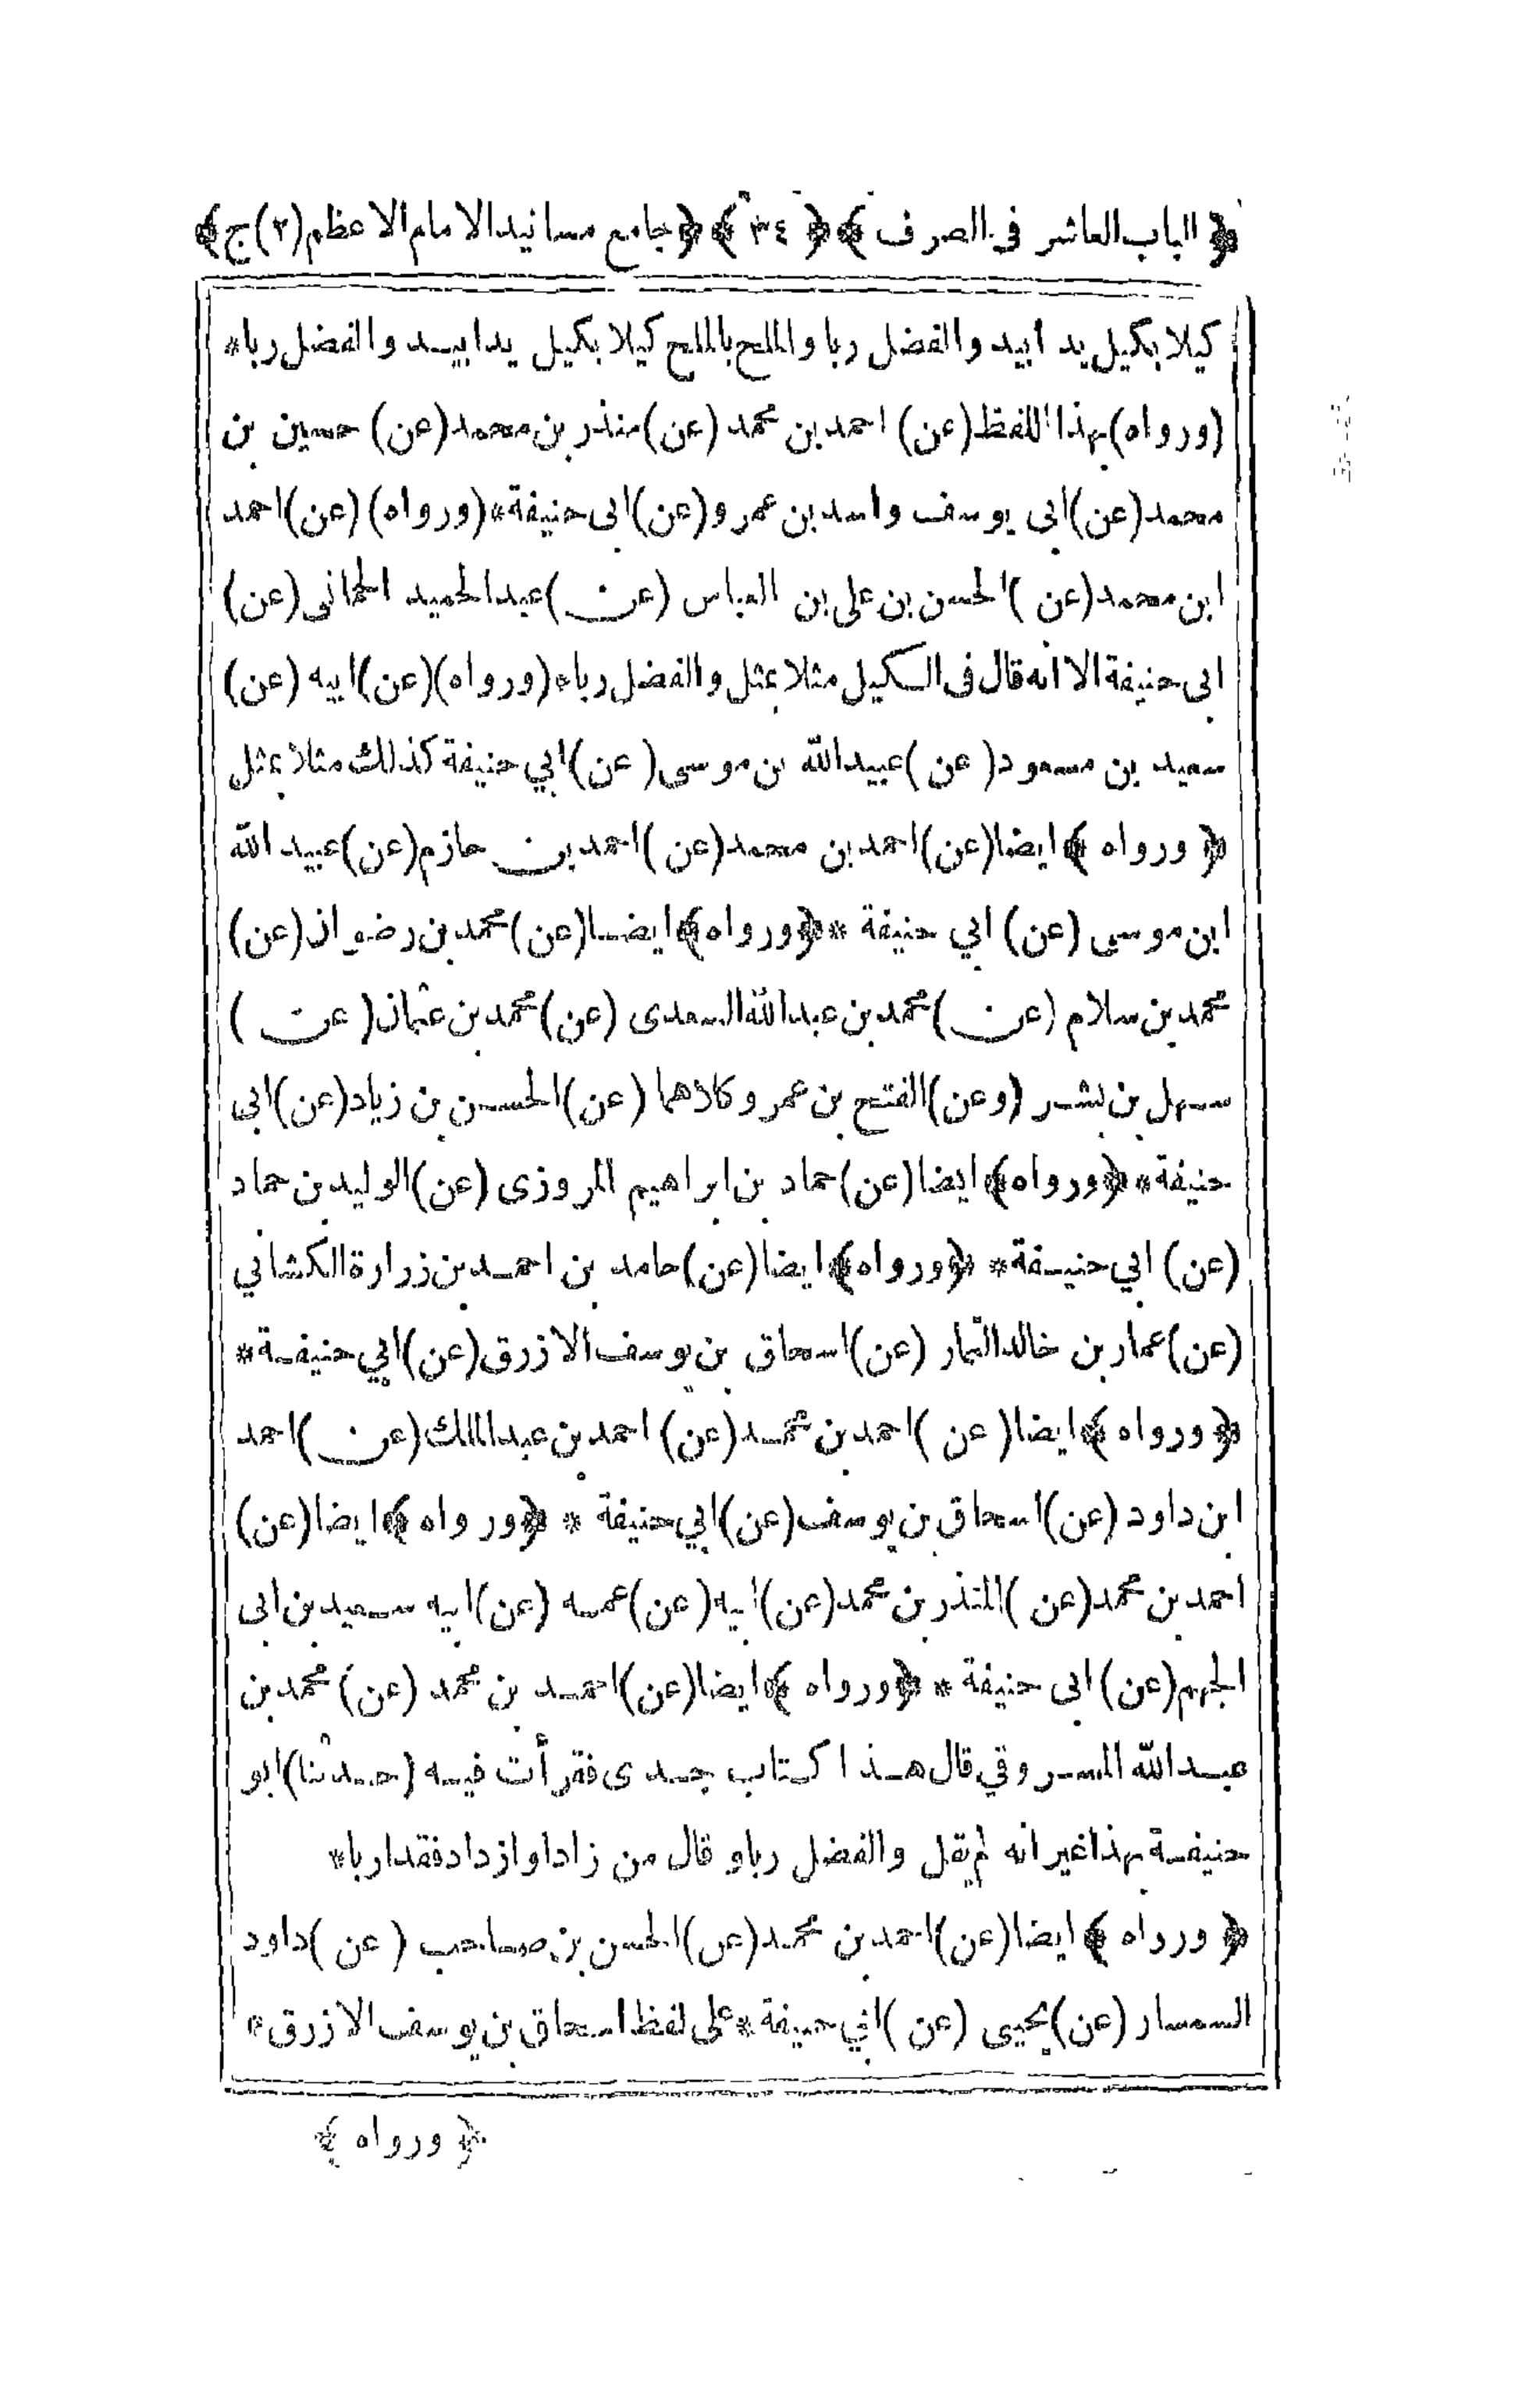 ﴿ الباب العاشر فى الصرف ﴾ ﴿ ٣٤ ﴾ ﴿ جامع مسانيد الامام الاعظم (٢) ج ﴾
كيلا بكيل يدا بيد والفضل ربا والملح بالملح كيلا بكيل يدا بيد والفضل ربا *
(ورواه) بهذا اللفظ (عن) احمد بن محمد (عن) منذر بن محمد (عن) حسين بن
محمد (عن) ابى يوسف واسد بن عمرو (عن) ابى حنيفة * (ورواه) (عن) احمد
ابن محمد (عن) الحسن بن على بن العباس (عن) عبد الحميد الحمانى (عن)
ابى حنيفة الا انه قال فى الكيل مثلا بمثل والفضل ربا * (ورواه) (عن) ابيه (عن)
سعيد بن مسعود (عن) عبيد الله بن موسى (عن) ابي حنيفة كذلك مثلا بمثل
﴿ ورواه ﴾ ايضا (عن) احمد بن محمد (عن) احمد بن حازم (عن) عبيد الله
ابن موسى (عن) ابي حنيفة * ﴿ ورواه ﴾ ايضا (عن) محمد بن رضوان (عن)
محمد بن سلام (عن) محمد بن عبد الله السعدى (عن) محمد بن عثمان (عن)
سهل بن بشر (وعن) الفتح بن عمرو كلاهما (عن) الحسن بن زياد (عن) ابى
حنيفة * ﴿ ورواه ﴾ ايضا (عن) حماد بن ابراهيم المروزى (عن) الوليد بن حماد
(عن) ابي حنيفة * ﴿ ورواه ﴾ ايضا (عن) حامد بن احمد بن زرارة الكشاني
(عن) عمار بن خالد التمار (عن) اسحاق بن يوسف الازرق (عن) ابي حنيفة *
﴿ ورواه ﴾ ايضا (عن) احمد بن محمد (عن) احمد بن عبد الملك (عن) احمد
ابن داود (عن) اسحاق بن يوسف (عن) ابي حنيفة * ﴿ ورواه ﴾ ايضا (عن)
احمد بن محمد (عن) المنذر بن محمد (عن) ابيه (عن) عمه (عن) ابيه سعيد بن ابى
الجهم (عن) ابى حنيفة * ﴿ ورواه ﴾ ايضا (عن) احمد بن محمد (عن) محمد بن
عبد الله المسروقي قال هذا كتاب جدى فقرأت فيه (حدثنا) ابو
حنيفة بهذا غير انه لم يقل والفضل ربا و قال من زاد او ازداد فقد اربا *
﴿ ورواه ﴾ ايضا (عن) احمد بن محمد (عن) الحسن بن صاحب (عن) داود
السمسار (عن) يحيى (عن) ابي حنيفة * على لفظ اسحاق بن يوسف الازرق *
﴿ ورواه ﴾